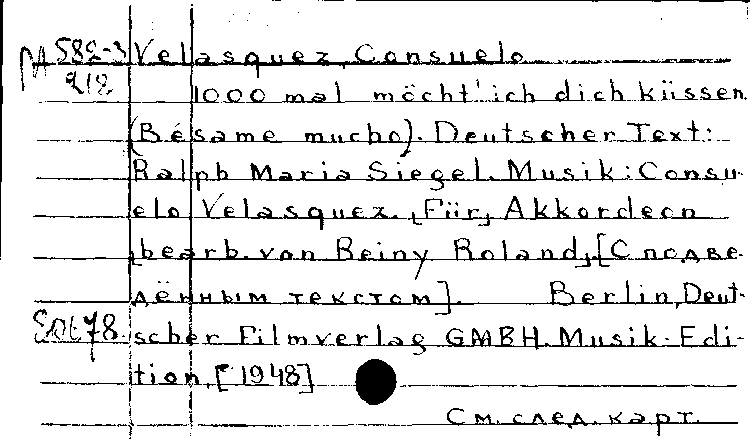 М 582-3 Velasquez, Consuelo
212 1000 mal möcht' ich dich küssen
(Bésame mucho). Deutscher Text:
Ralph Maria Siegel. Musik: Consu-
elo Velasquez. [Für] Akkordeon
[bearb. von Beiny Roland]. [С подве-
дённым текстом]. Berlin, Deut-
78. scher Filmverlag GMBH. Musik-Edi-
tion, [1948]
См. след. карт.